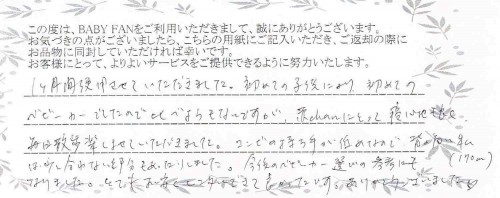 この度は、BABY FANをご利用いただきまして、誠にありがとうございます。
お気づきの点がございましたら、こちらの用紙にご記入いただき、ご返却の際に
お品物に同封していただければ幸いです。
お客様にとって、よりよいサービスをご提供できるように努力いたします。
1ヶ月間使用させていただきました。初めての子供により、初めての
ベビーカーでしたので比べようもないですが、赤chanにとって寝心地も良く
毎日散歩楽しませていただきました。コンビの持ち手が低めなので
には少し合わない もありました。今後のベビーカー選びの参考にも (170cm)
なりました。とても できて良かったです。ありがとうございました